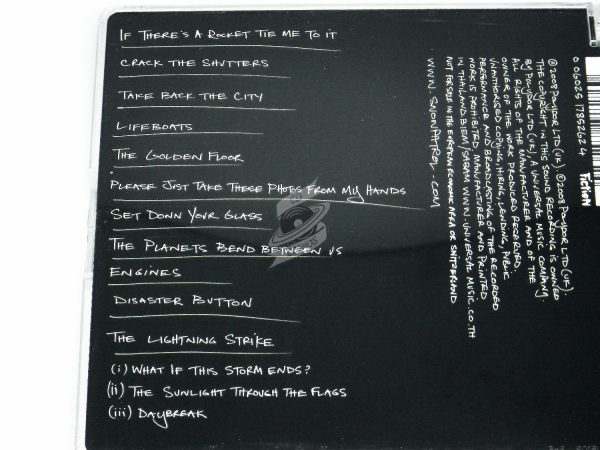 IF THERE'S A ROCKET TIE ME TO IT
CRACK THE SHUTTERS
TAKE BACK THE CITY
LIFEBOATS
THE GOLDEN FLOOR
PLEASE JUST TAKE THESE PHOTOS FROM MY HANDS
SET DOWN YOUR GLASS
THE PLANETS BEND BETWEEN US
ENGINES
DISASTER BUTTON
THE LIGHTNING STRIKE
(i) WHAT IF THIS STORM ENDS?
(ii) THE SUNLIGHT THROUGH THE FLAGS
(iii) DAYBREAK
0 06025 1785262 4
℗2008 POLYDOR LTD (UK). ©2008 POLYDOR LTD (UK).
THE COPYRIGHT IN THIS SOUND RECORDING IS OWNED
BY POLYDOR LTD (UK). A UNIVERSAL MUSIC COMPANY.
ALL RIGHTS OF THE MANUFACTURER AND OF THE
OWNER OF THE WORK PRODUCED RESERVED.
UNAUTHORISED COPYING, HIRING, LENDING, PUBLIC
PERFORMANCE AND BROADCASTING OF THE RECORDED
WORK IS PROHIBITED. MANUFACTURED AND PRINTED
IN THAILAND BY WWW.UNIVERSALMUSIC.CO.TH
NOT FOR SALE IN THE EUROPEAN ECONOMIC AREA OR SWITZERLAND
WWW.SNOWPATROL.COM